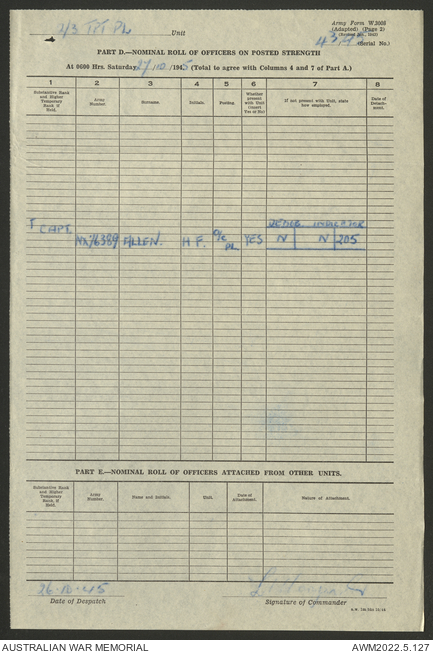 2/3 TPT PL Unit
Army Form W3008
(Adapted) (Page 2)
(Serial No.)
PART D.—NOMINAL ROLL OF OFFICERS ON POSTED STRENGTH
At 0600 Hrs. Saturday 27/10/1945 (Total to agree with Columns 4 and 7 of Part A.)
1 2 3 4 5 6 7 8
Substantive Rank and Higher Temporary Rank if Held. Army Number. Surname. Initials. Posting. Whether present with Unit (Insert Yes or No) If not present with Unit, state how employed. Date of Detachment.
DEMOB. INDICATOR
T CAPT. NX76389 ALLEN. H F. O/C PL. YES N N 205
PART E.—NOMINAL ROLL OF OFFICERS ATTACHED FROM OTHER UNITS.
Substantive Rank and Higher Temporary Rank, if Held. Army Number. Name and Initials. Unit. Date of Attachment. Nature of Attachment.
26·10·45
Date of Despatch Signature of Commander
AUSTRALIAN WAR MEMORIAL AWM2022.5.127